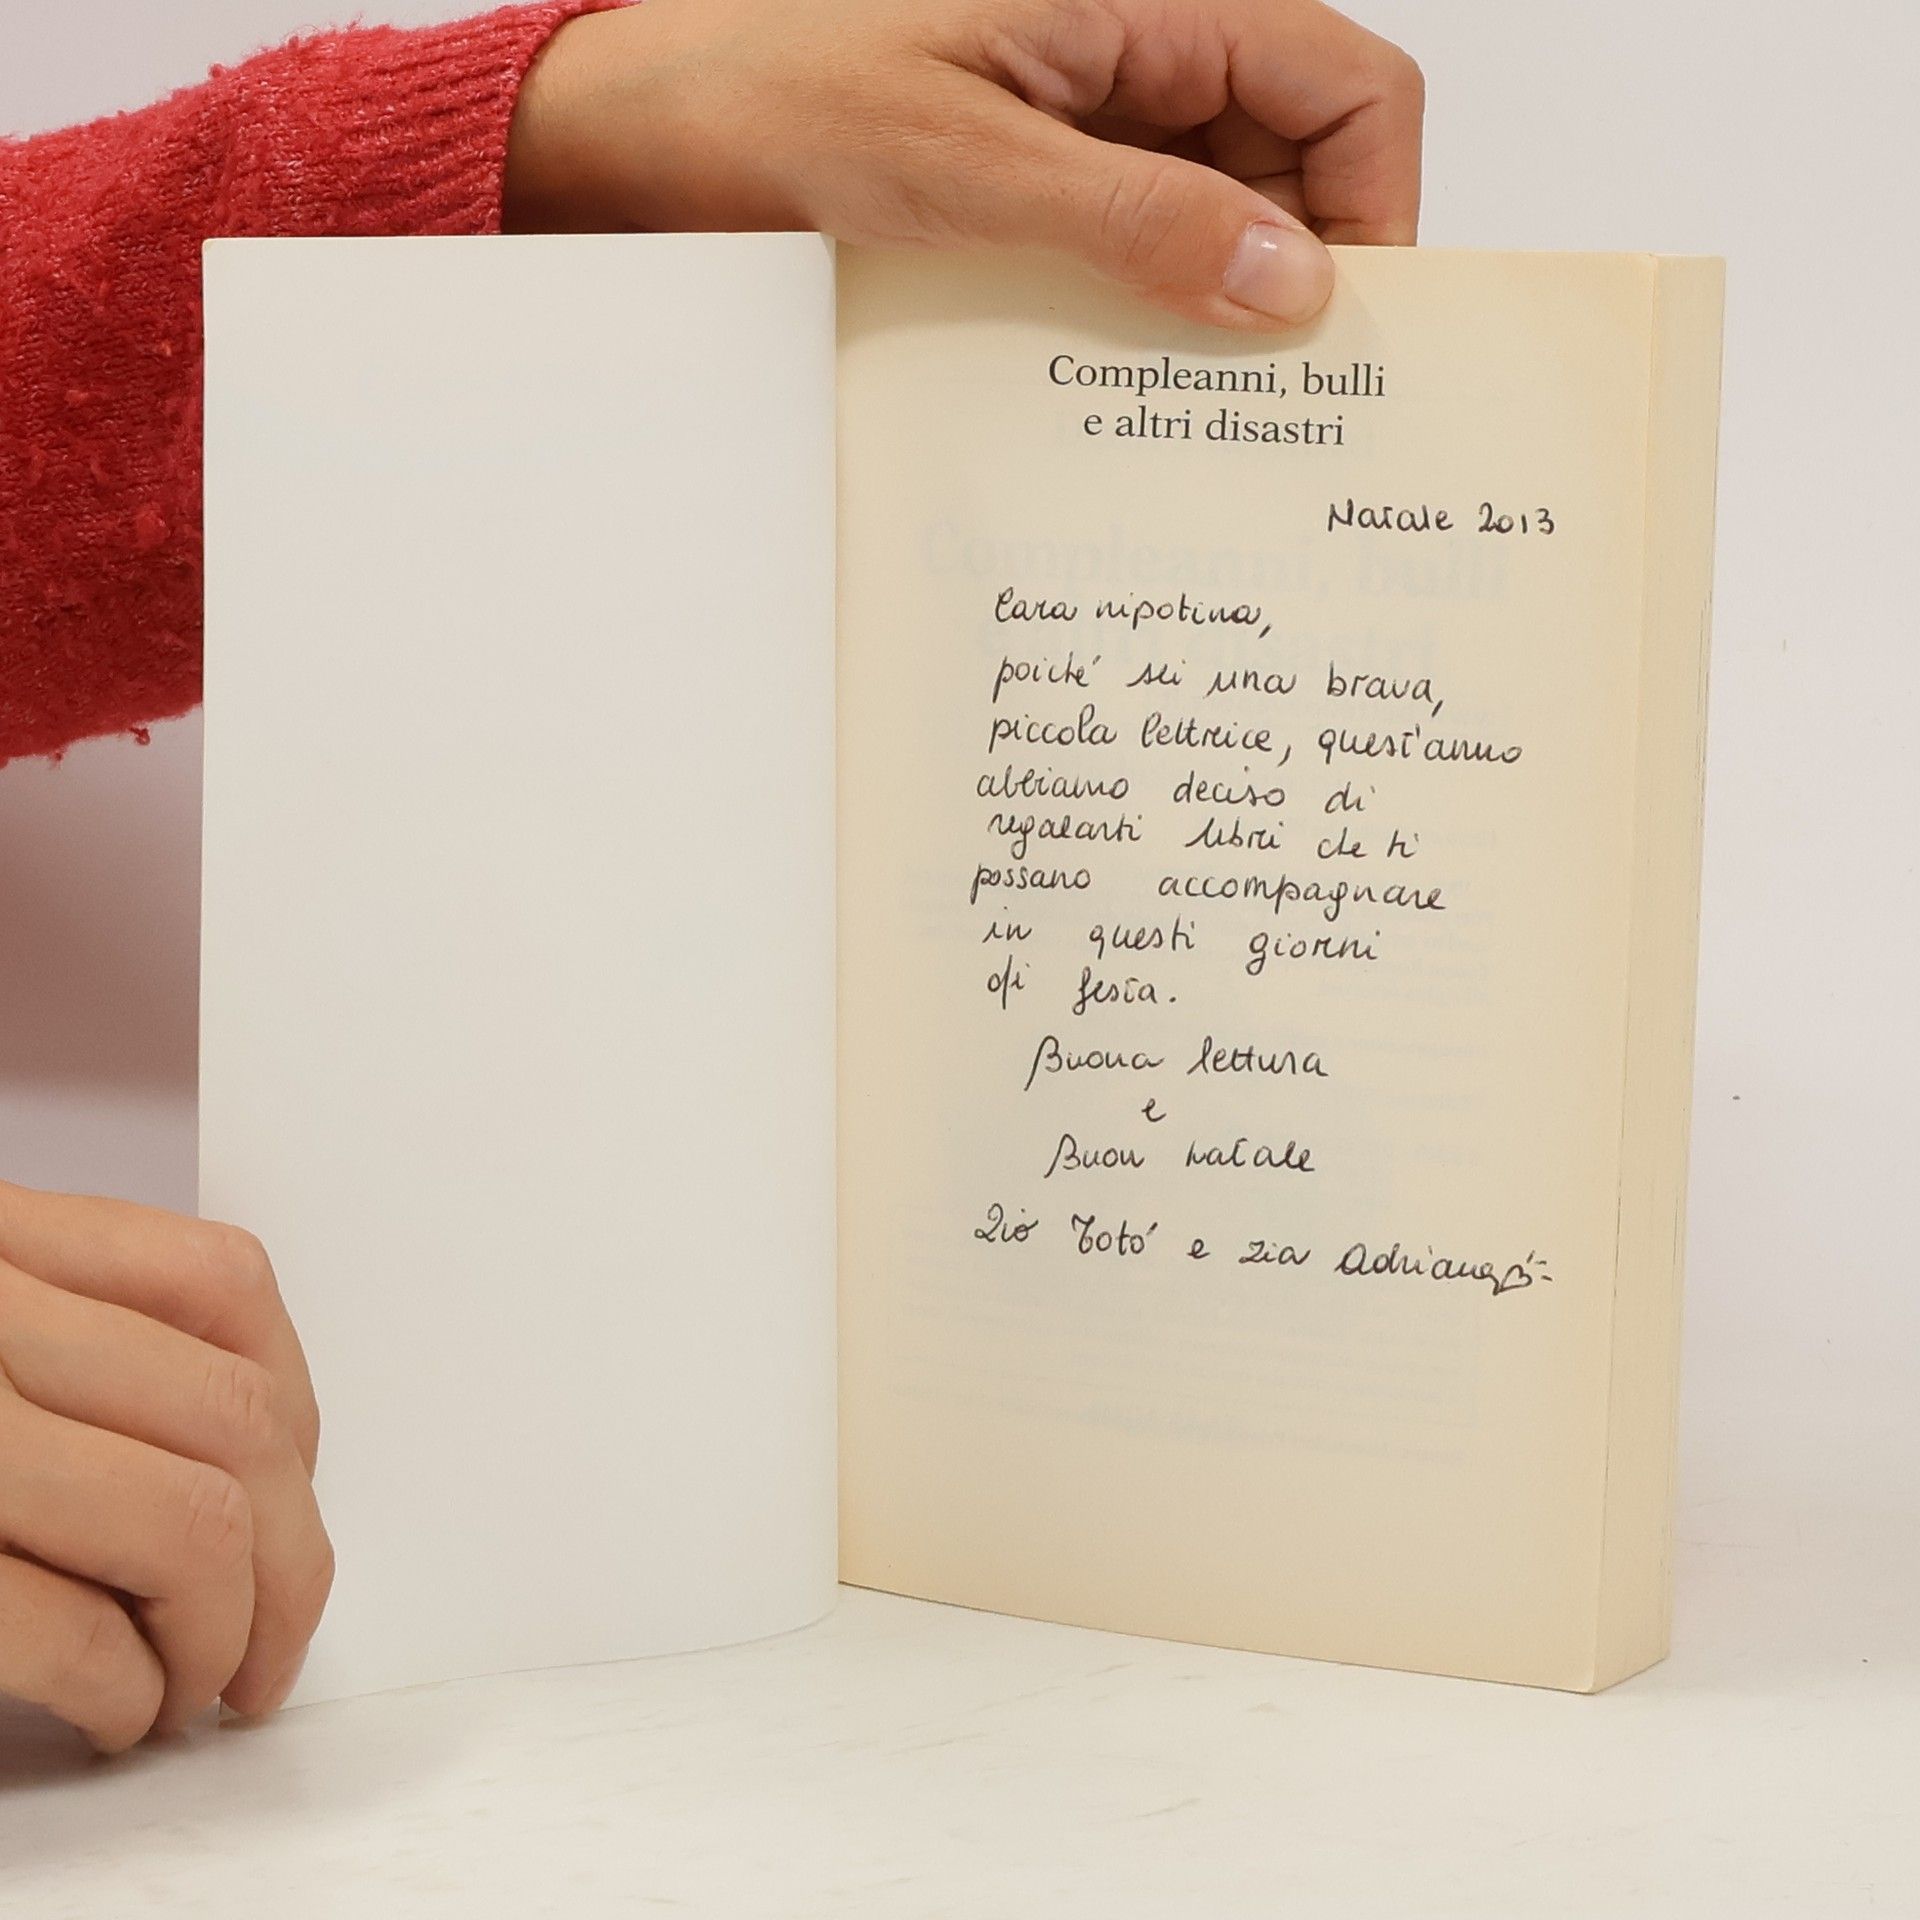 Compleanni, bulli
e altri disastri
Natale 2013
Cara nipotina,
poiché sei una brava,
piccola lettrice, quest'anno
abbiamo deciso di
regalarti libri che ti
possano accompagnare
in questi giorni
di festa.
Buona lettura
e
Buon Natale
Zio Totó e zia Adriana